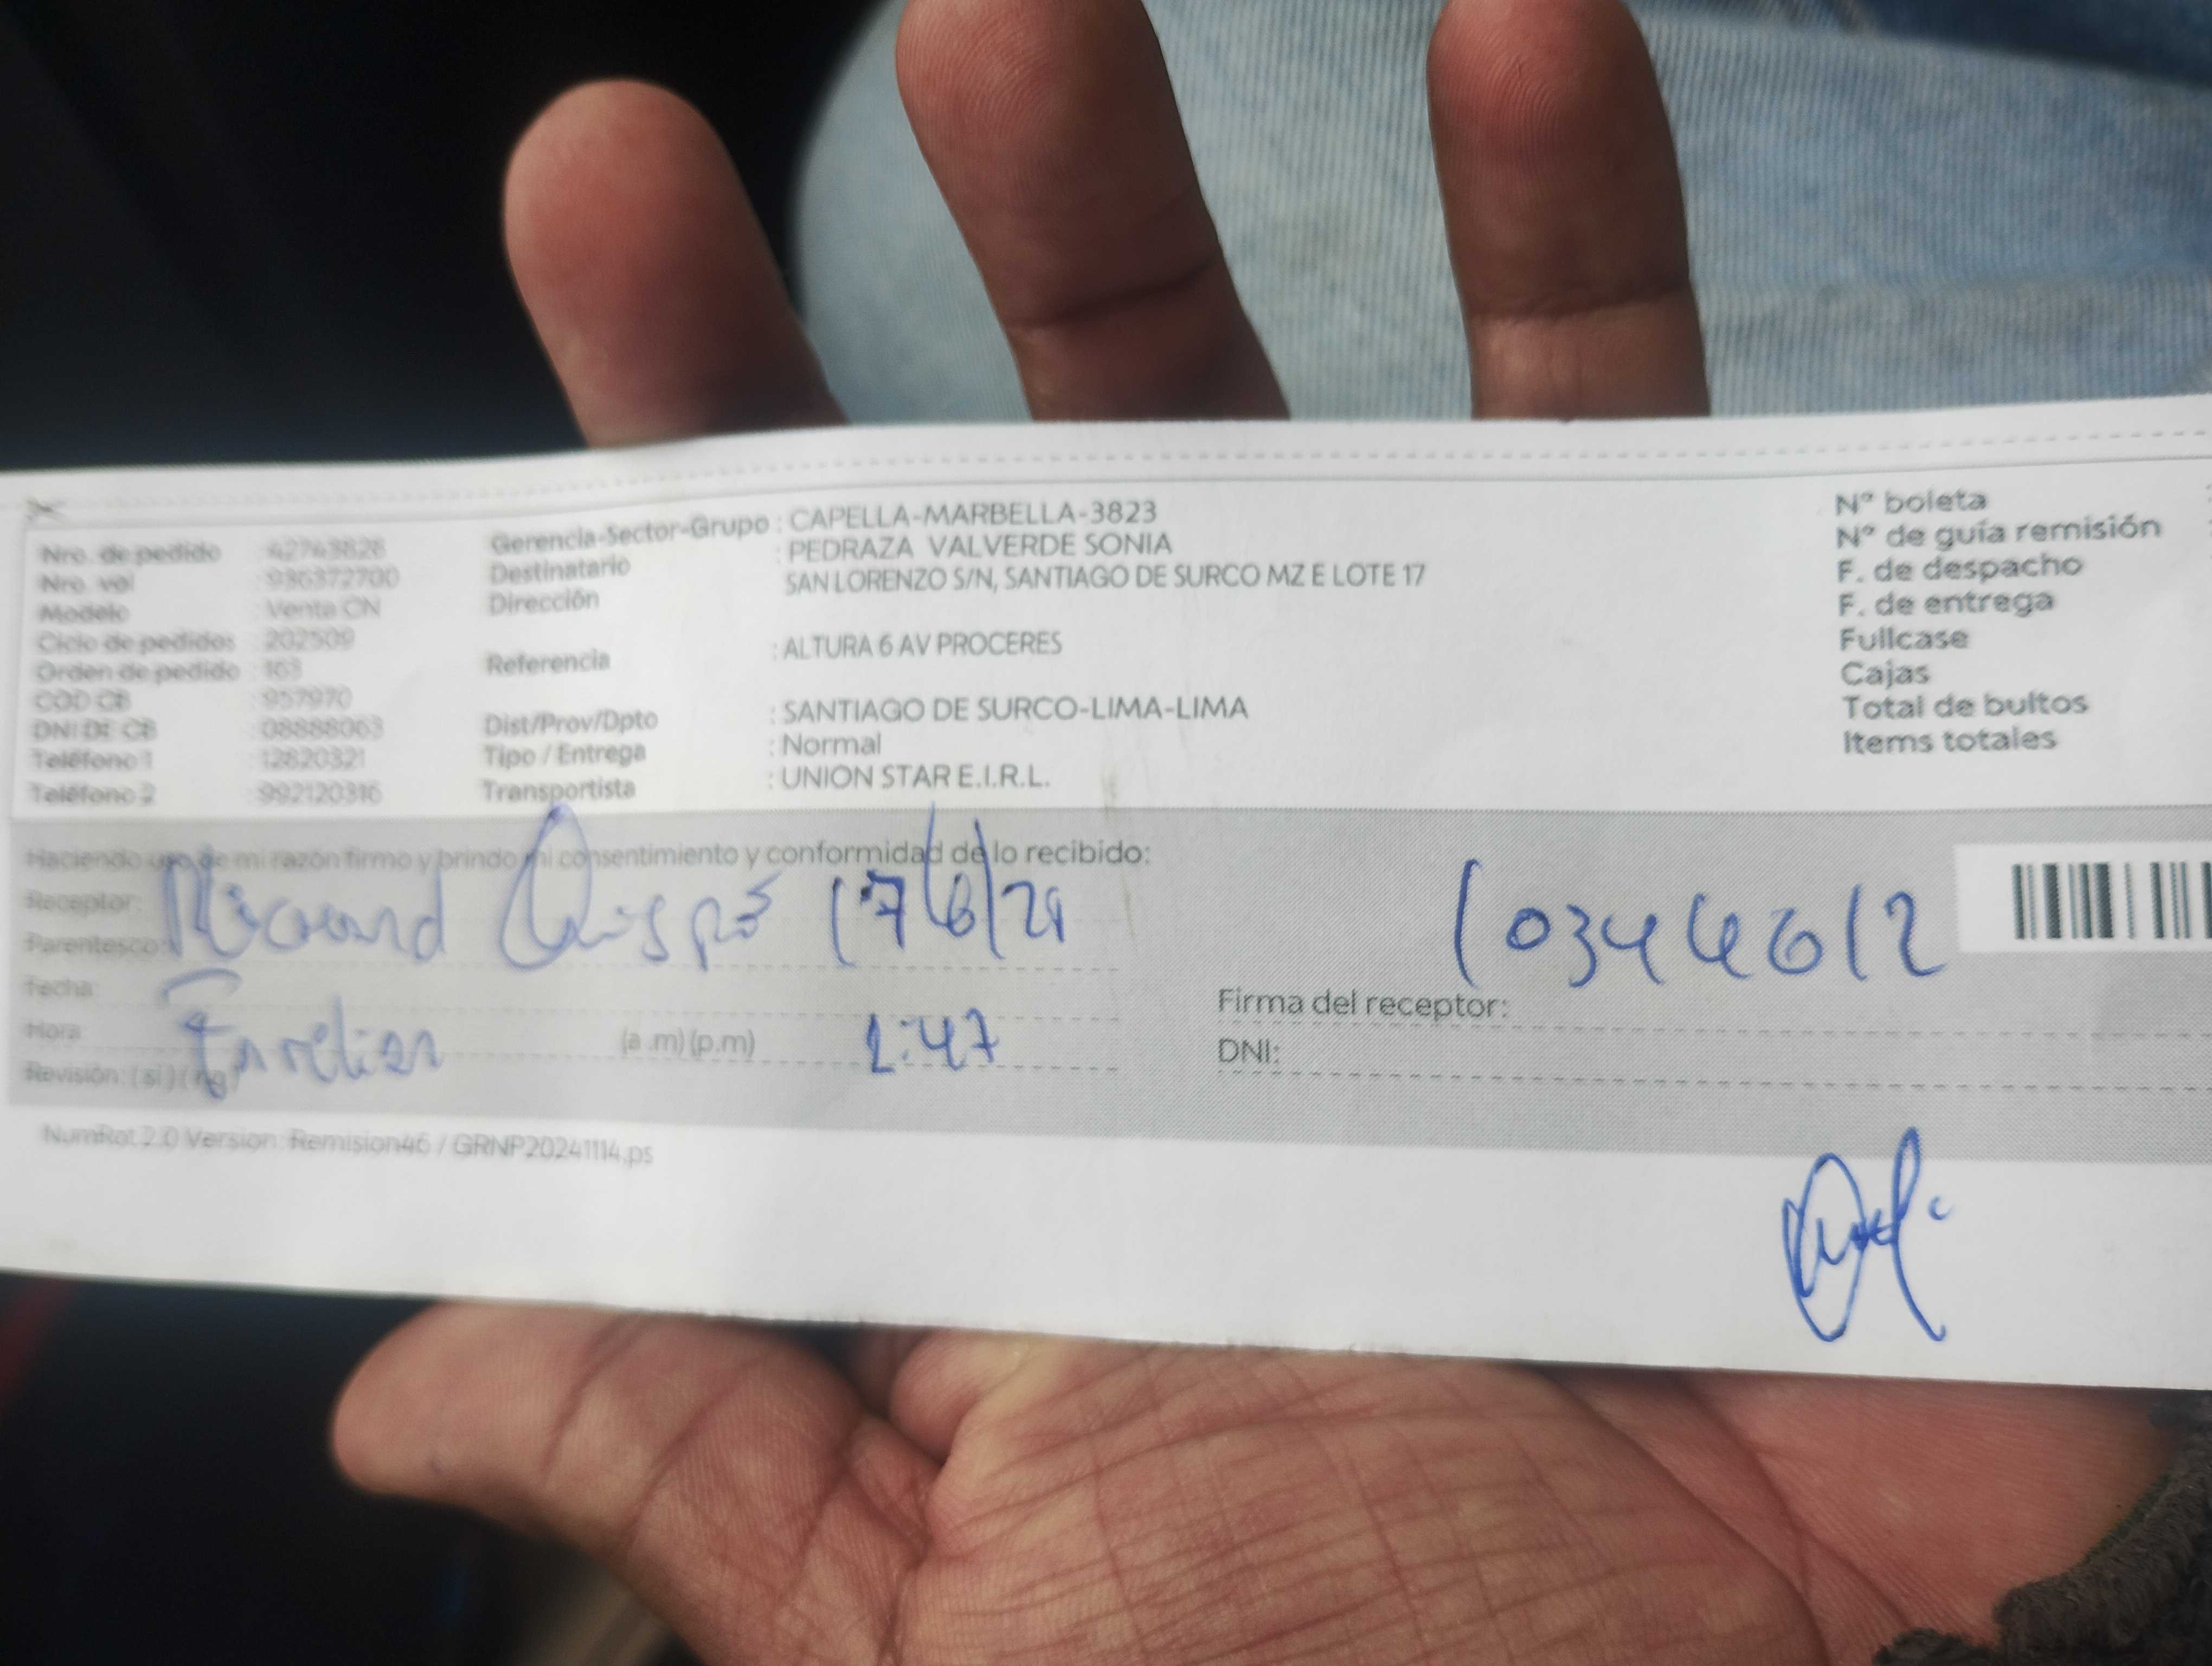 Nro. de pedido : 42743828
Nro. vol : 936372700
Modelo : Venta CN
Ciclo de pedidos : 202509
Orden de pedido : 163
COD CB : 957970
DNI DE CB : 08888063
Teléfono 1 : 12820321
Teléfono 2 : 992120316
Gerencia-Sector-Grupo : CAPELLA-MARBELLA-3823
Destinatario : PEDRAZA VALVERDE SONIA
Dirección SAN LORENZO S/N, SANTIAGO DE SURCO MZ E LOTE 17
Referencia : ALTURA 6 AV PROCERES
Dist/Prov/Dpto : SANTIAGO DE SURCO-LIMA-LIMA
Tipo / Entrega : Normal
Transportista : UNION STAR E.I.R.L.
N° boleta
N° de guía remisión
F. de despacho
F. de entrega
Fullcase
Cajas
Total de bultos
Items totales
Haciendo uso de mi razón firmo y brindo mi consentimiento y conformidad de lo recibido:
Receptor:
Parentesco:
Fecha:
Hora (a.m) (p.m) 2:47
Revisión: (si) (no)
10344612
Firma del receptor:
DNI:
NumRot 2.0 Version: Remision46 / GRNP20241114.ps